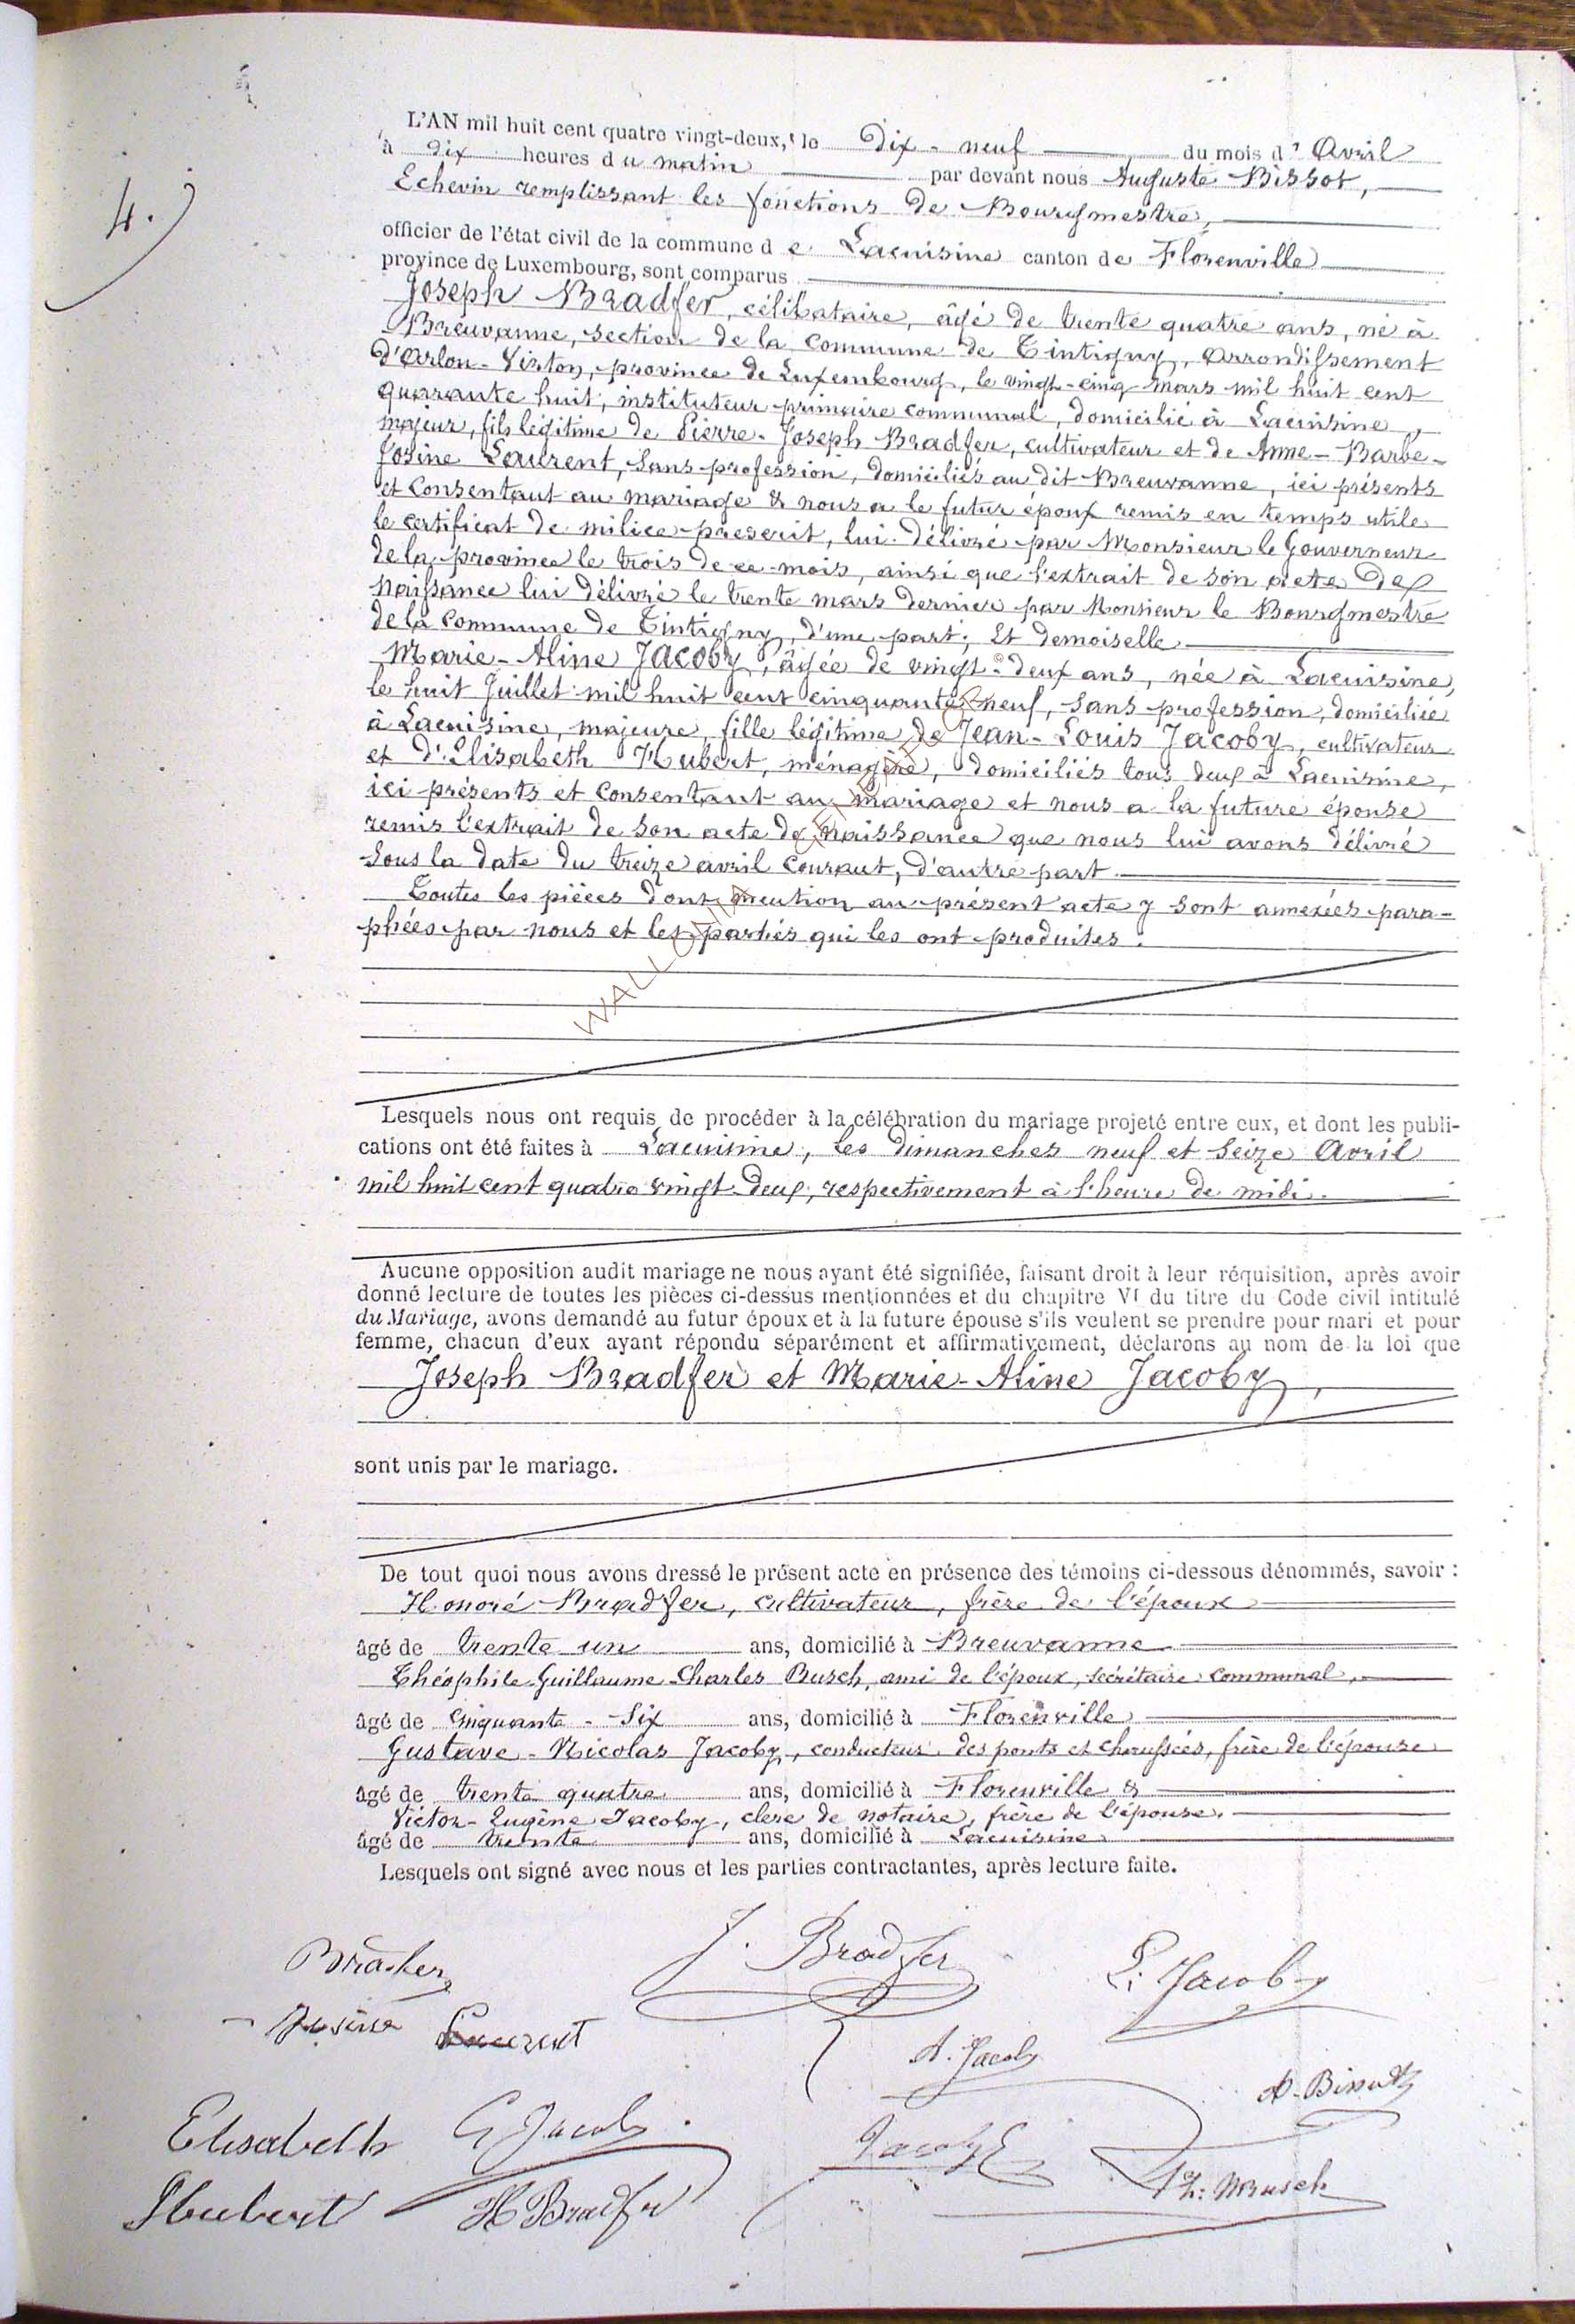 4.
L'AN mil huit cent quatre vingt-deux, le Dix-neuf du mois d' Avril
à dix heures du matin par devant nous Auguste Bissot,
Echevin remplissant les fonctions de Bourgmestre,
officier de l'état civil de la commune de Lacuisine canton de Florenville
province de Luxembourg, sont comparus
Joseph Bradfer, célibataire, âgé de trente quatre ans, né à
Breuvanne, section de la commune de Tintigny, arrondissement
d'Arlon-Virton, province de Luxembourg, le vingt-cinq mars mil huit cent
quarante huit, instituteur primaire communal, domicilié à Lacuisine,
majeur, fils légitime de Pierre-Joseph Bradfer, cultivateur et de Anne-Barbe-
Josine Laurent, sans profession, domiciliés au dit Breuvanne, ici présents
et consentant au mariage & nous a le futur époux remis en temps utile
le certificat de milice prescrit, lui délivré par Monsieur le Gouverneur
de la province le trois de ce mois, ainsi que l'extrait de son acte de
naissance lui délivré le trente mars dernier par Monsieur le Bourgmestre
de la commune de Tintigny, d'une part; Et demoiselle
Marie-Aline Jacoby, âgée de vingt-deux ans, née à Lacuisine,
le huit Juillet mil huit cent cinquante neuf, sans profession, domiciliée
à Lacuisine, majeure, fille légitime de Jean-Louis Jacoby, cultivateur
et d'Elisabeth Hubert, ménagère, domiciliés tous deux à Lacuisine,
ici présents et consentant au mariage et nous a la future épouse
remis l'extrait de son acte de naissance que nous lui avons délivré
sous la date du treize avril courant, d'autre part.
Toutes les pièces dont mention au présent acte y sont annexées para-
phées par nous et les parties qui les ont produites.
WALLONIA
Lesquels nous ont requis de procéder à la célébration du mariage projeté entre eux, et dont les publi-
cations ont été faites à Lacuisine, les dimanches neuf et seize Avril
mil huit cent quatre vingt deux, respectivement à l'heure de midi.
Aucune opposition audit mariage ne nous ayant été signifiée, faisant droit à leur réquisition, après avoir
donné lecture de toutes les pièces ci-dessus mentionnées et du chapitre VI du titre du Code civil intitulé
du Mariage, avons demandé au futur époux et à la future épouse s'ils veulent se prendre pour mari et pour
femme, chacun d'eux ayant répondu séparément et affirmativement, déclarons au nom de la loi que
Joseph Bradfer et Marie-Aline Jacoby,
sont unis par le mariage.
De tout quoi nous avons dressé le présent acte en présence des témoins ci-dessous dénommés, savoir :
Honoré Bradfer, cultivateur, frère de l'époux
âgé de trente un ans, domicilié à Breuvanne
Théophile-Guillaume-Charles Busch, ami de l'époux, secrétaire communal,
âgé de cinquante-six ans, domicilié à Florenville
Gustave-Nicolas Jacoby, conducteur des ponts et chaussées, frère de l'épouse
âgé de trente quatre ans, domicilié à Florenville &
Victor-Eugène Jacoby, clerc de notaire, frère de l'épouse.
âgé de trente ans, domicilié à Lacuisine
Lesquels ont signé avec nous et les parties contractantes, après lecture faite.
Bradfer J. Bradfer L. Jacoby
Josine Laurent
A. Jacoby A. Bissot
Elisabeth G Jacoby Jacoby E
Hubert H Bradfer Th: Busch